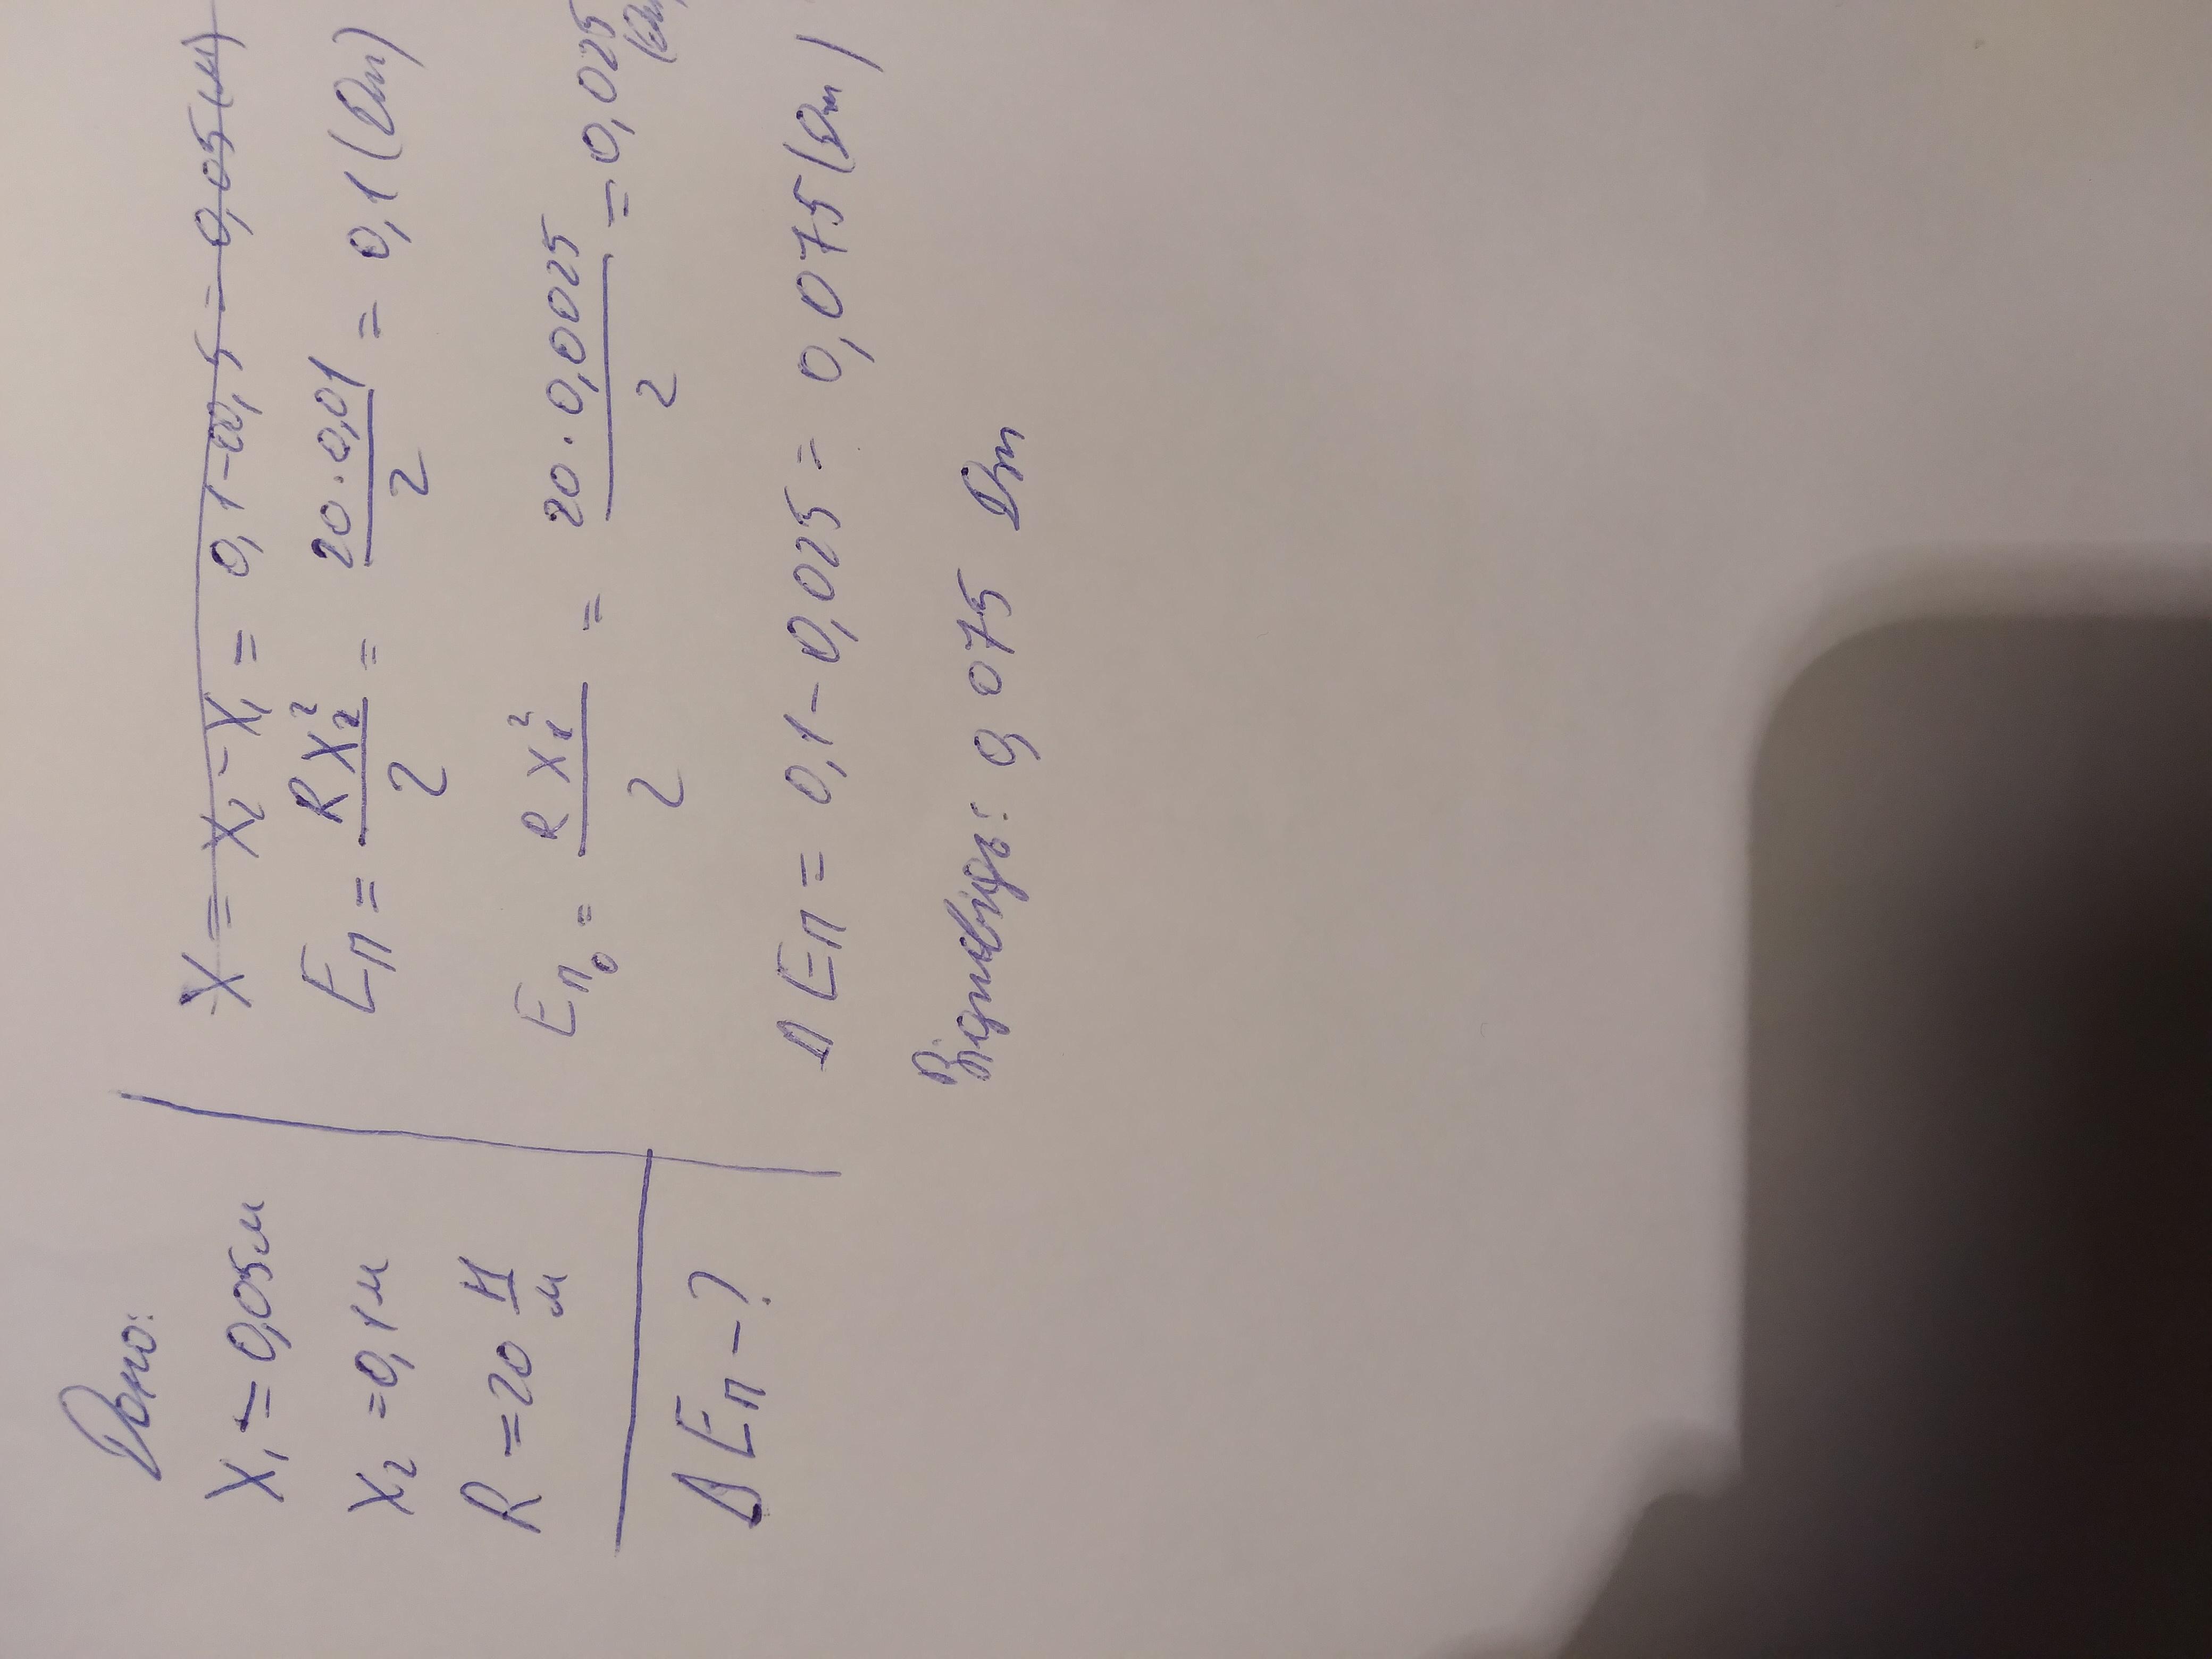 Дано:
X₁ = 0,05м
X₂ = 0,1м
R = 20 Н/м
ΔEп - ?
X = X₂ - X₁ = 0,1 - 0,5 = 0,05 (м)
Eп = RX₂²/2 = 20 · 0,01/2 = 0,1 (Дж)
Eп₀ = RX₁²/2 = 20 · 0,0025/2 = 0,025 (Дж)
ΔEп = 0,1 - 0,025 = 0,075 (Дж)
Відповідь: 0,075 Дж